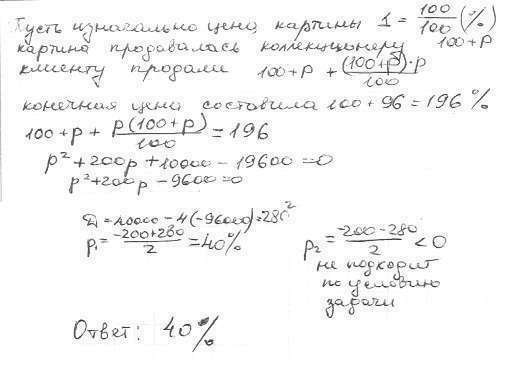 Пусть изначально цена картины 1 = 100/100 (%)
картина продавалась коллекционеру 100+p
клиенту продали 100+p + (100+p)·p/100
конечная цена составила 100 + 96 = 196 %
100+p + p(100+p)/100 = 196
p² + 200p + 10000 – 19600 = 0
p² + 200p – 9600 = 0
D = 40000 – 4(–9600) = 280²
p₁ = –200+280/2 = 40%
p₂ = –200–280/2 < 0
не подходит
по условию
задачи
Ответ: 40%